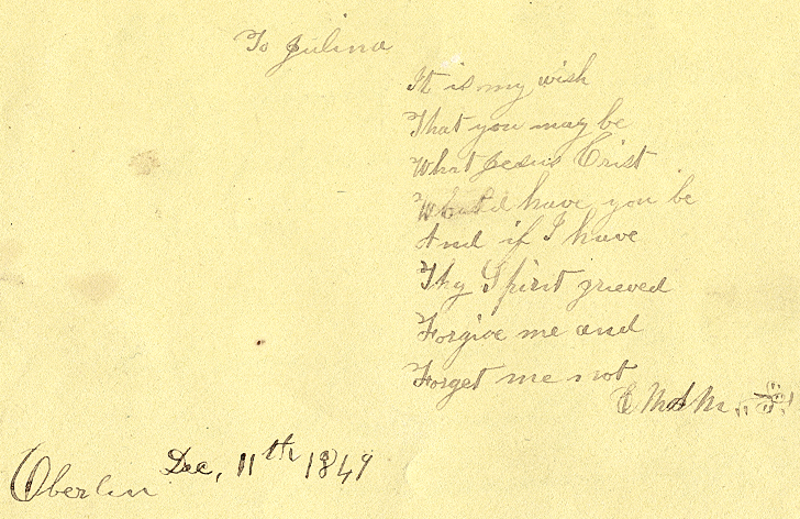 To Julina
It is my wish
That you may be
What Jesus Crist
Would have you be
And if I have
Thy Spirit grieved
Forgive me and
Forget me not
Oberlin Dec, 11th 1849